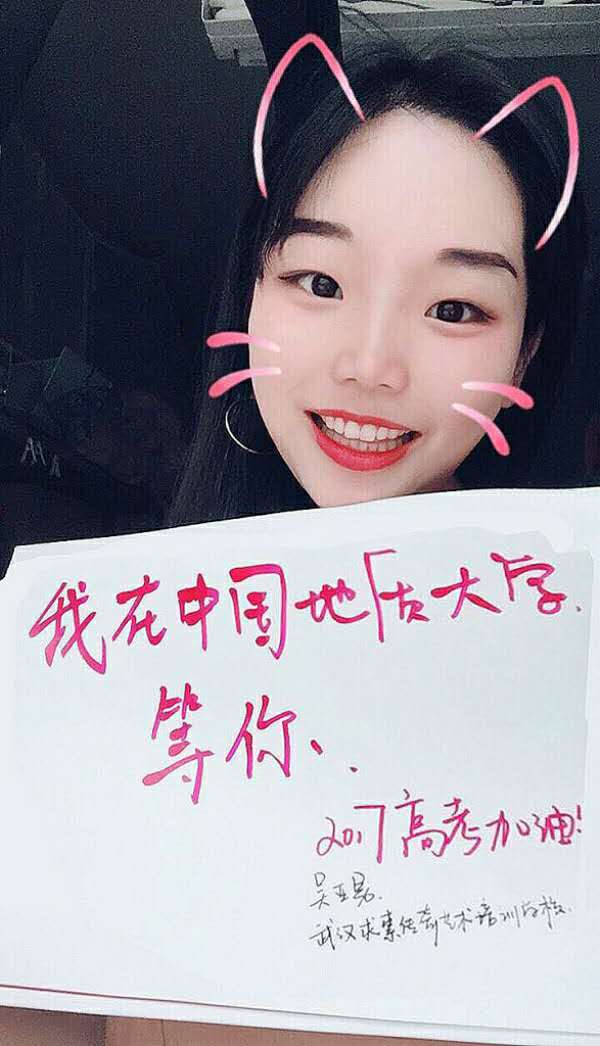 我在中国地质大学
等你、、
2017高考加油!
吴亚昆
武汉求索传奇艺术培训学校